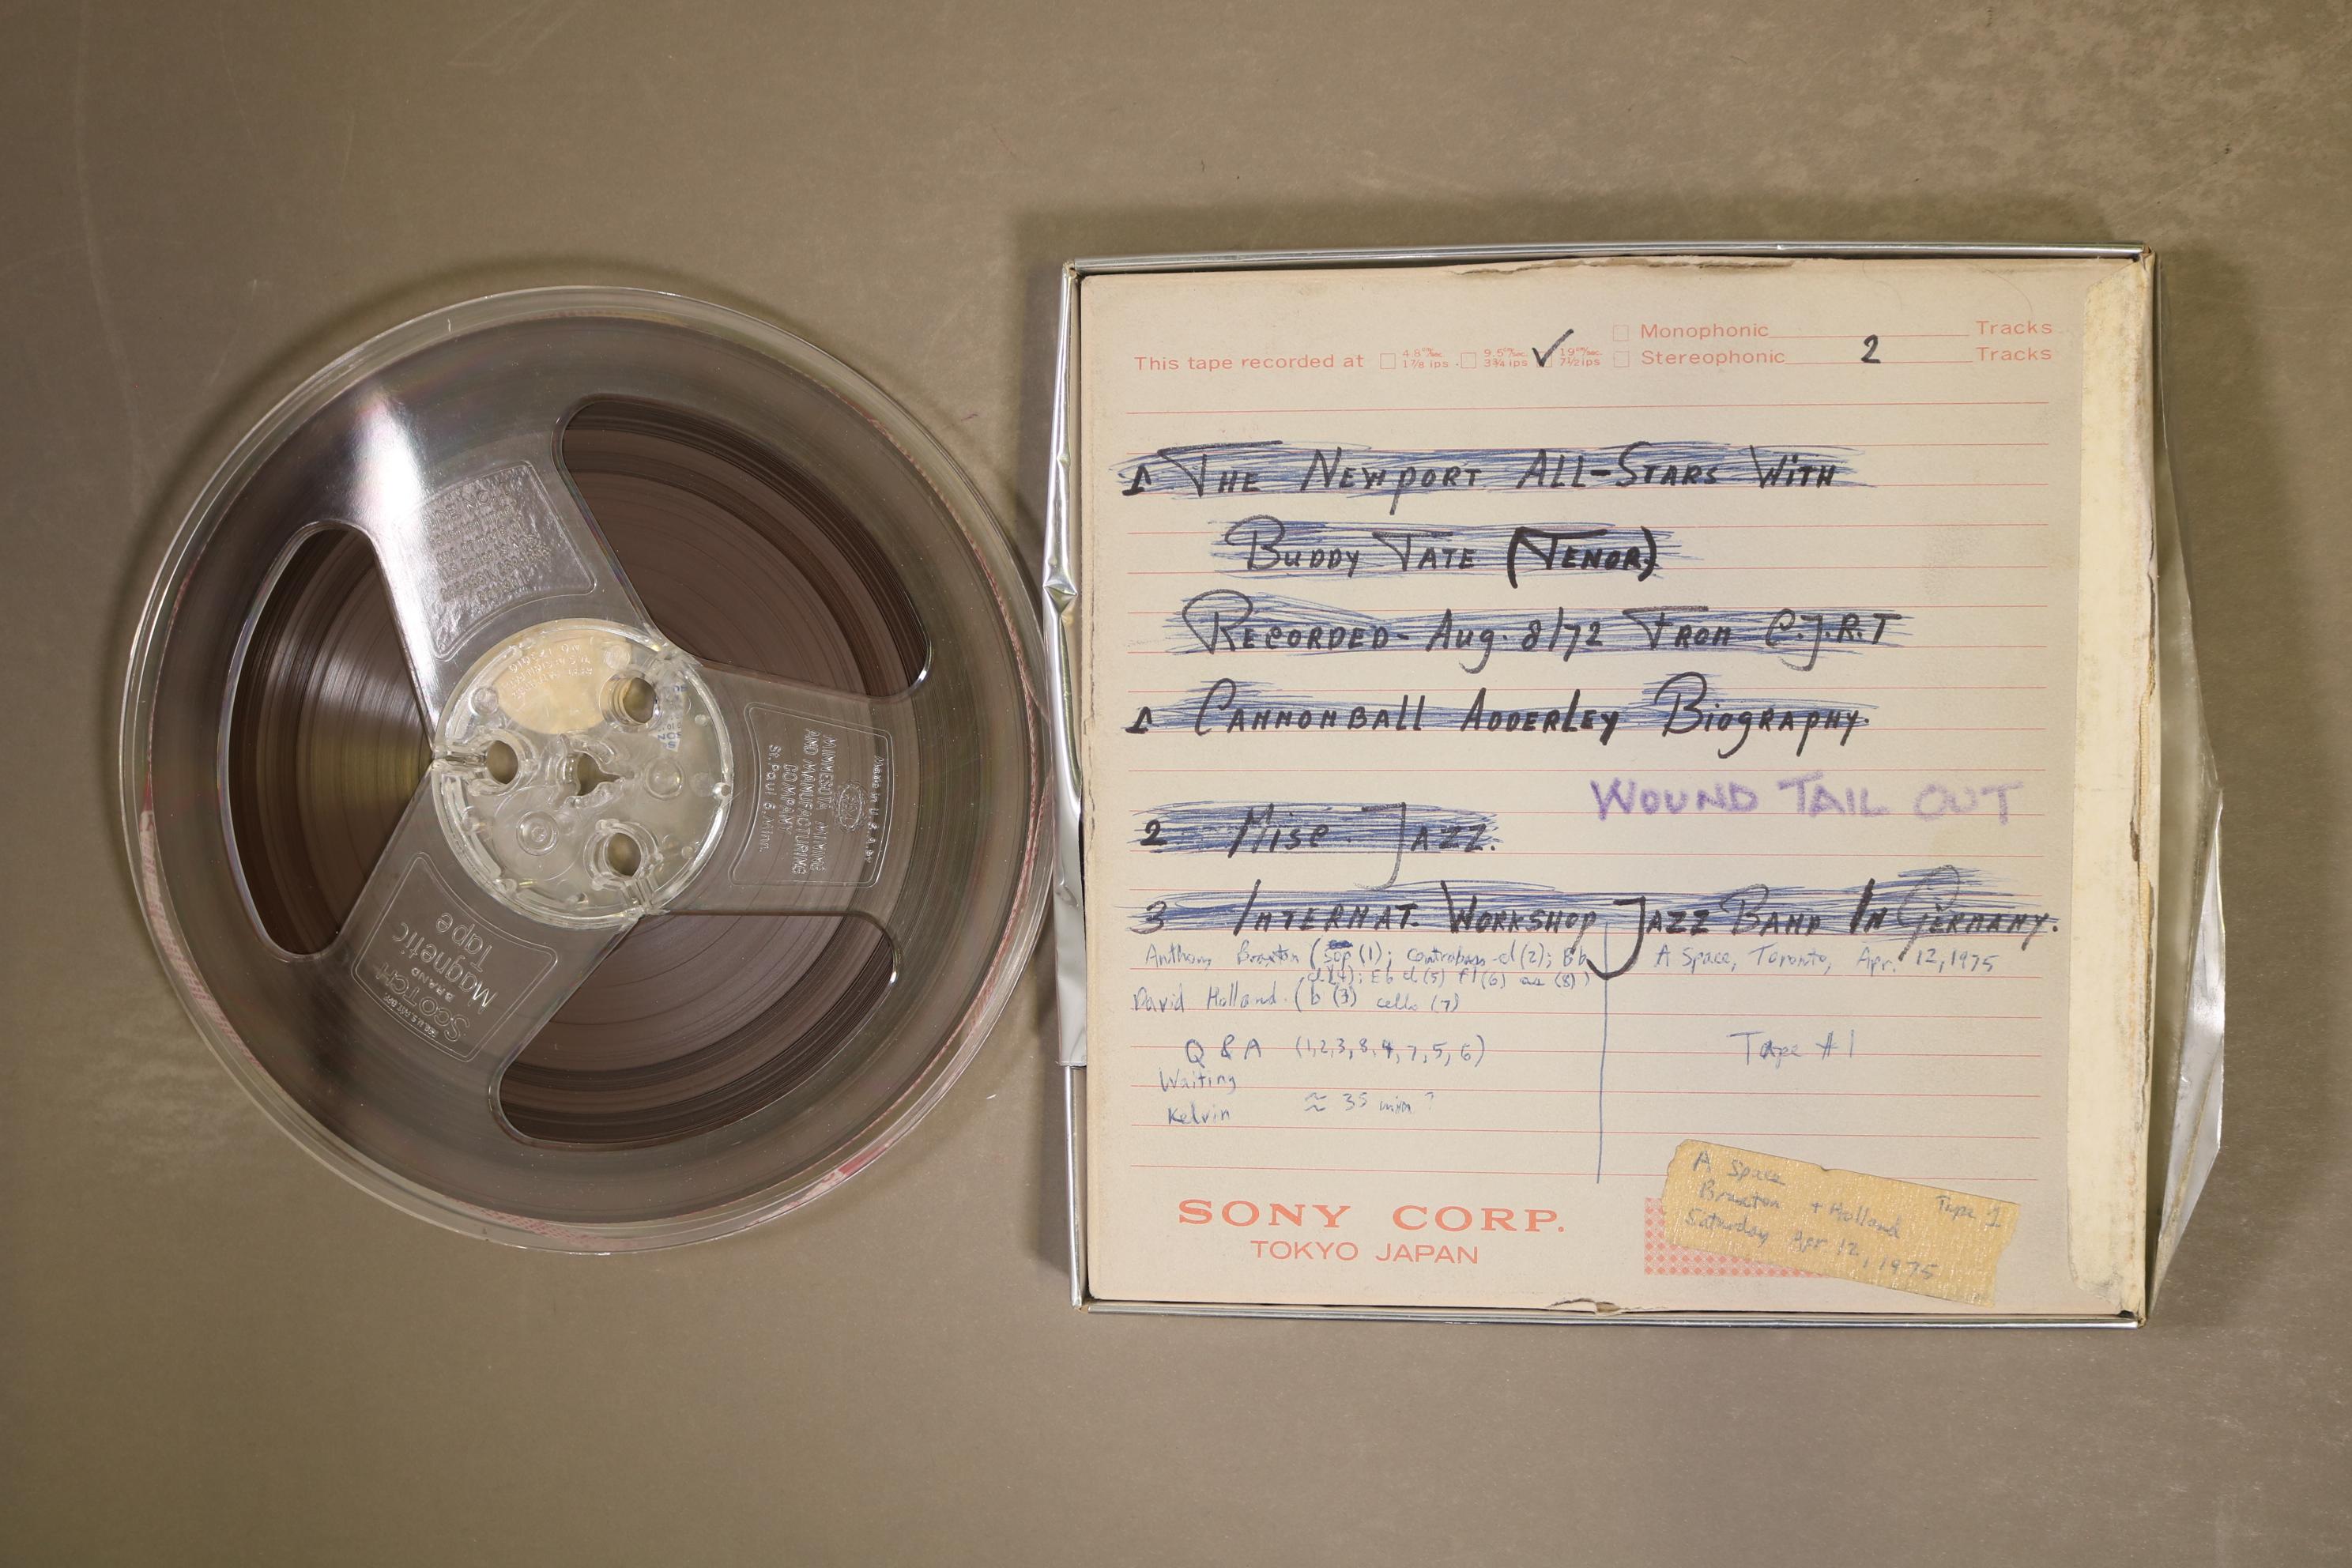 Made in U.S.A. by
MINNESOTA MINING
AND MANUFACTURING
COMPANY
St. Paul 6, Minn.
SCOTCH
BRAND
Magnetic
Tape
This tape recorded at 4.8 cm/sec. 1 7/8 ips 9.5 cm/sec. 3 3/4 ips ✓ 19 cm/sec. 7 1/2 ips
Monophonic Tracks
Stereophonic 2 Tracks
1 THE NEWPORT ALL-STARS WITH
BUDDY TATE (TENOR)
RECORDED- Aug. 8/72 FROM C.J.R.T
1 CANNONBALL ADDERLEY BIOGRAPHY.
WOUND TAIL OUT
2 MISC. JAZZ.
3 INTERNAT. WORKSHOP JAZZ BAND IN GERMANY.
Anthony Braxton (sop (1); contrabass-cl (2); Bb
cl (4); Eb cl (5) fl (6) as (8))
David Holland. (b (3) cello (7)
A Space, Toronto, Apr. 12, 1975
Q & A (1,2,3,8,4,7,5,6)
Waiting
Kelvin ≈ 35 min?
Tape #1
SONY CORP.
TOKYO JAPAN
A Space
Braxton + Holland Tape 1
Saturday Apr 12, 1975